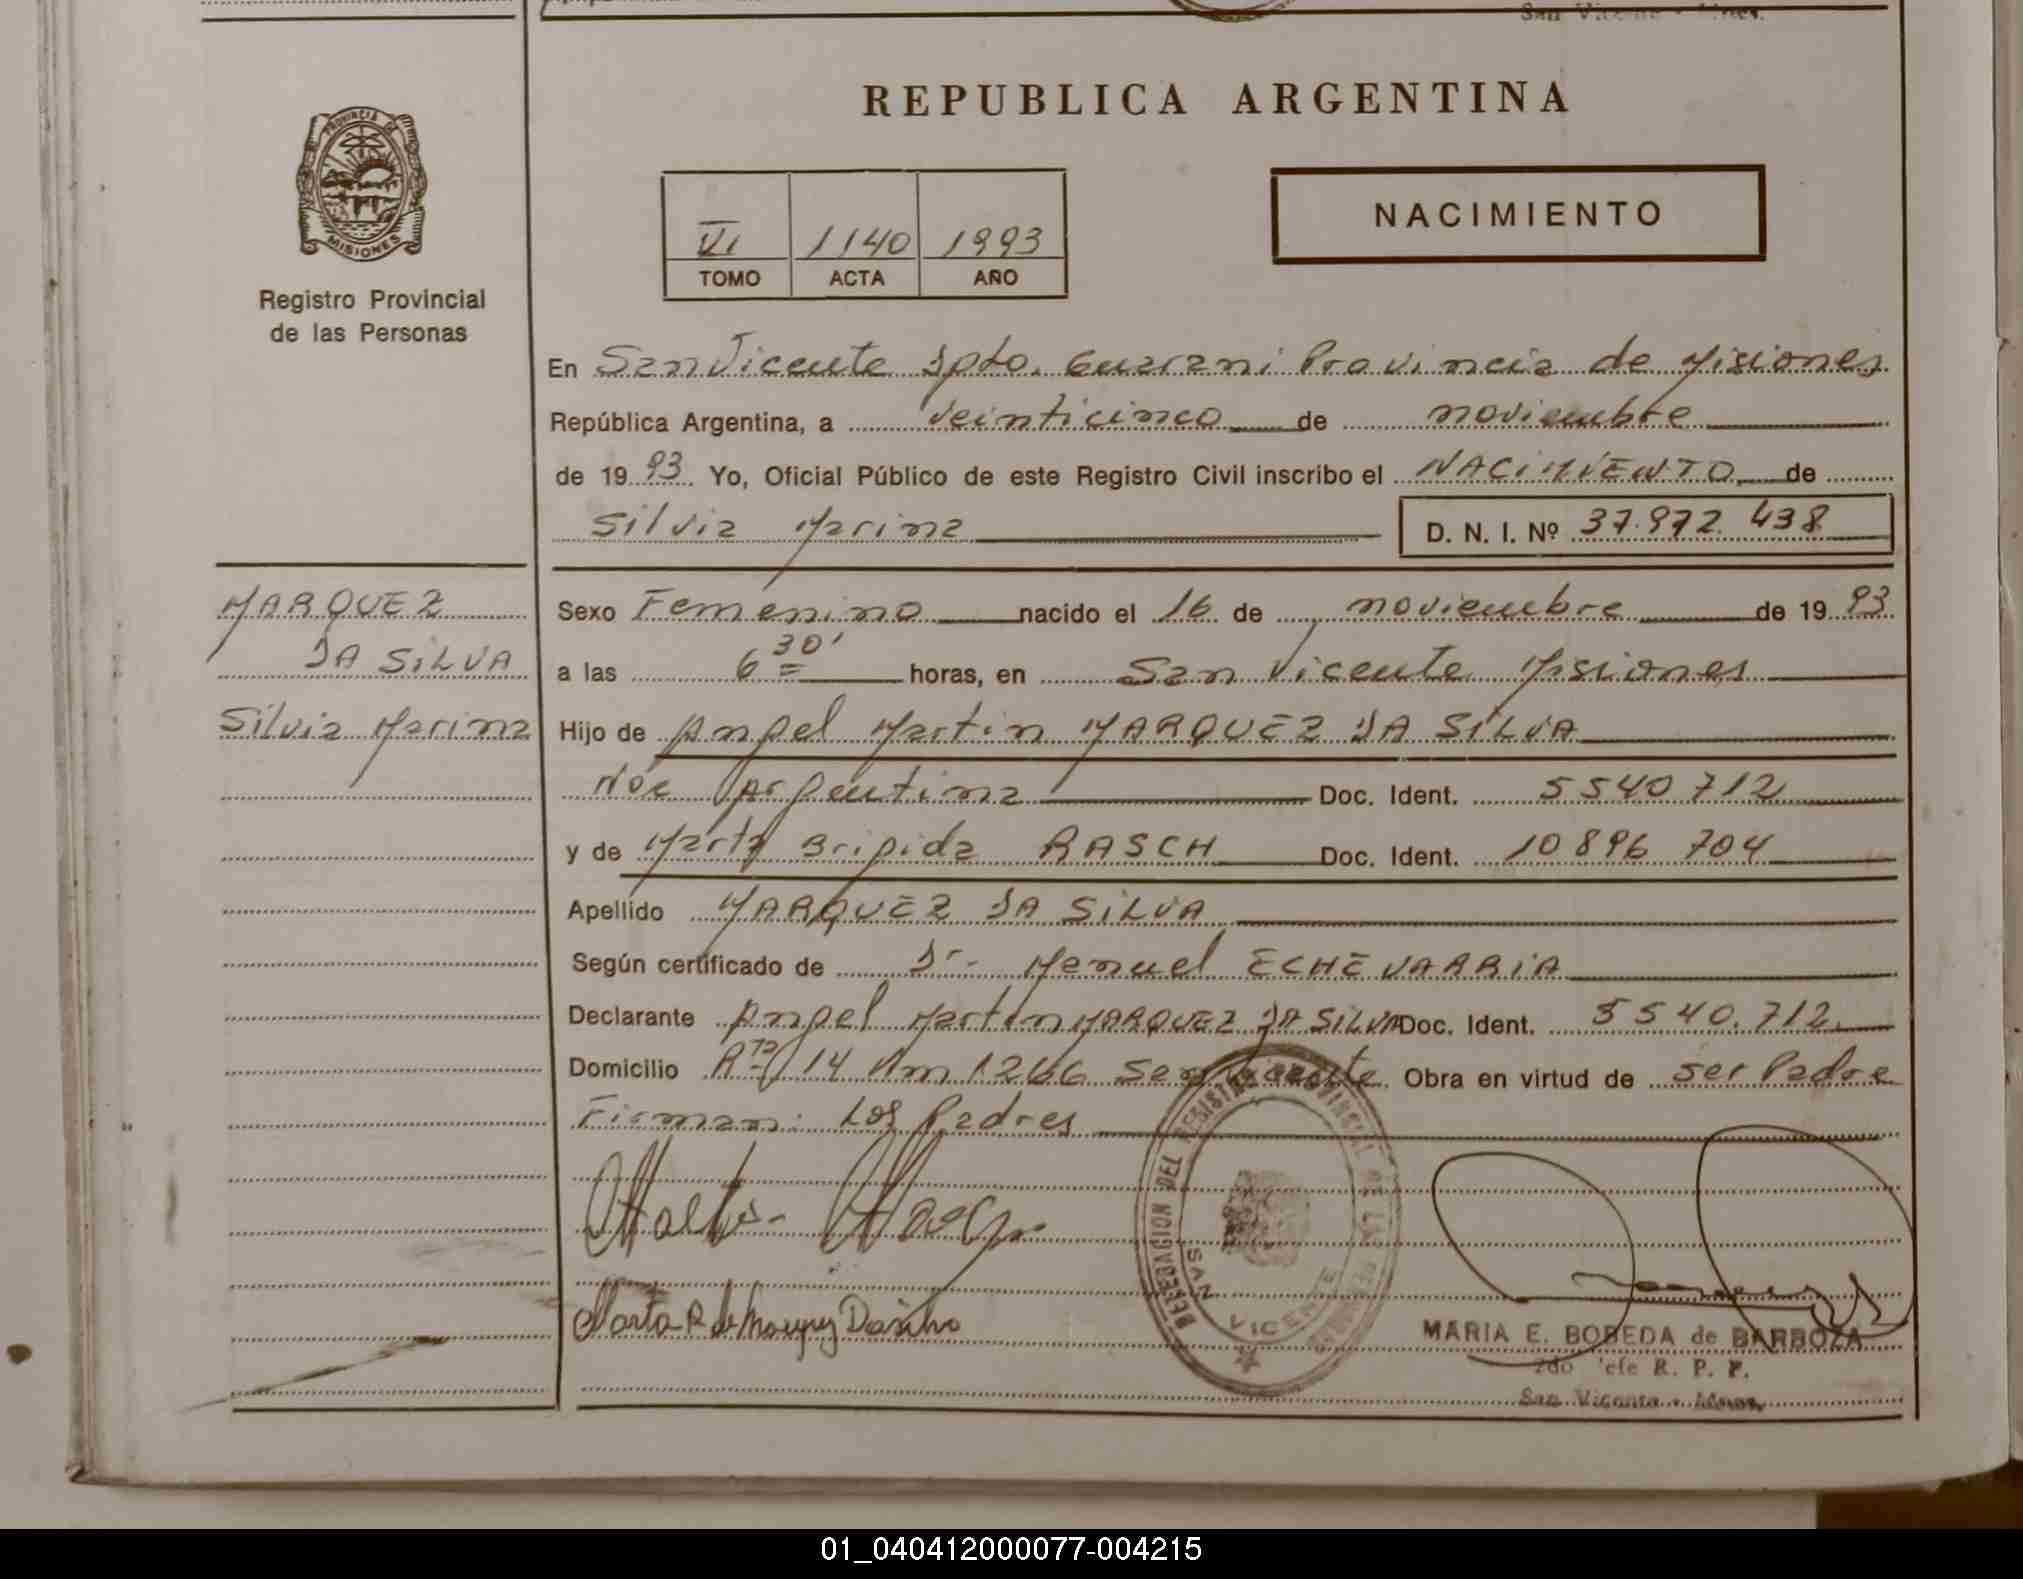 San Vicente - Mnes.
REPUBLICA ARGENTINA
PROVINCIA DE
MISIONES
Registro Provincial
de las Personas
VI 1140 1993
TOMO ACTA AÑO
NACIMIENTO
En San Vicente Dpto. Guarani Provincia de Misiones
República Argentina, a veinticinco de noviembre
de 1993 Yo, Oficial Público de este Registro Civil inscribo el NACIMIENTO de
Silvia Marina D. N. I. Nº 37.972.438
MARQUEZ
DA SILVA
Silvia Marina
Sexo Femenino nacido el 16 de noviembre de 1993
a las 6 30' horas, en San Vicente Misiones
Hijo de Angel Martin MARQUEZ DA SILVA
Nac Argentina Doc. Ident. 5540712
y de Marta Brigida RASCH Doc. Ident. 10896 704
Apellido MARQUEZ DA SILVA
Según certificado de Dr. Manuel ECHEVARRIA
Declarante Angel Martin MARQUEZ DA SILVA Doc. Ident. 5540.712
Domicilio Rta 14 Km 1266 San Vicente Obra en virtud de ser Padre
Firman: Los Padres
DELEGACION DEL REGISTRO PROVINCIAL DE LAS PERSONAS
SAN VICENTE
Marta R de Marquez Dasilva
MARIA E. BOBEDA de BARBOZA
2do Jefe R. P. P.
San Vicente - Mnes.
01_040412000077-004215